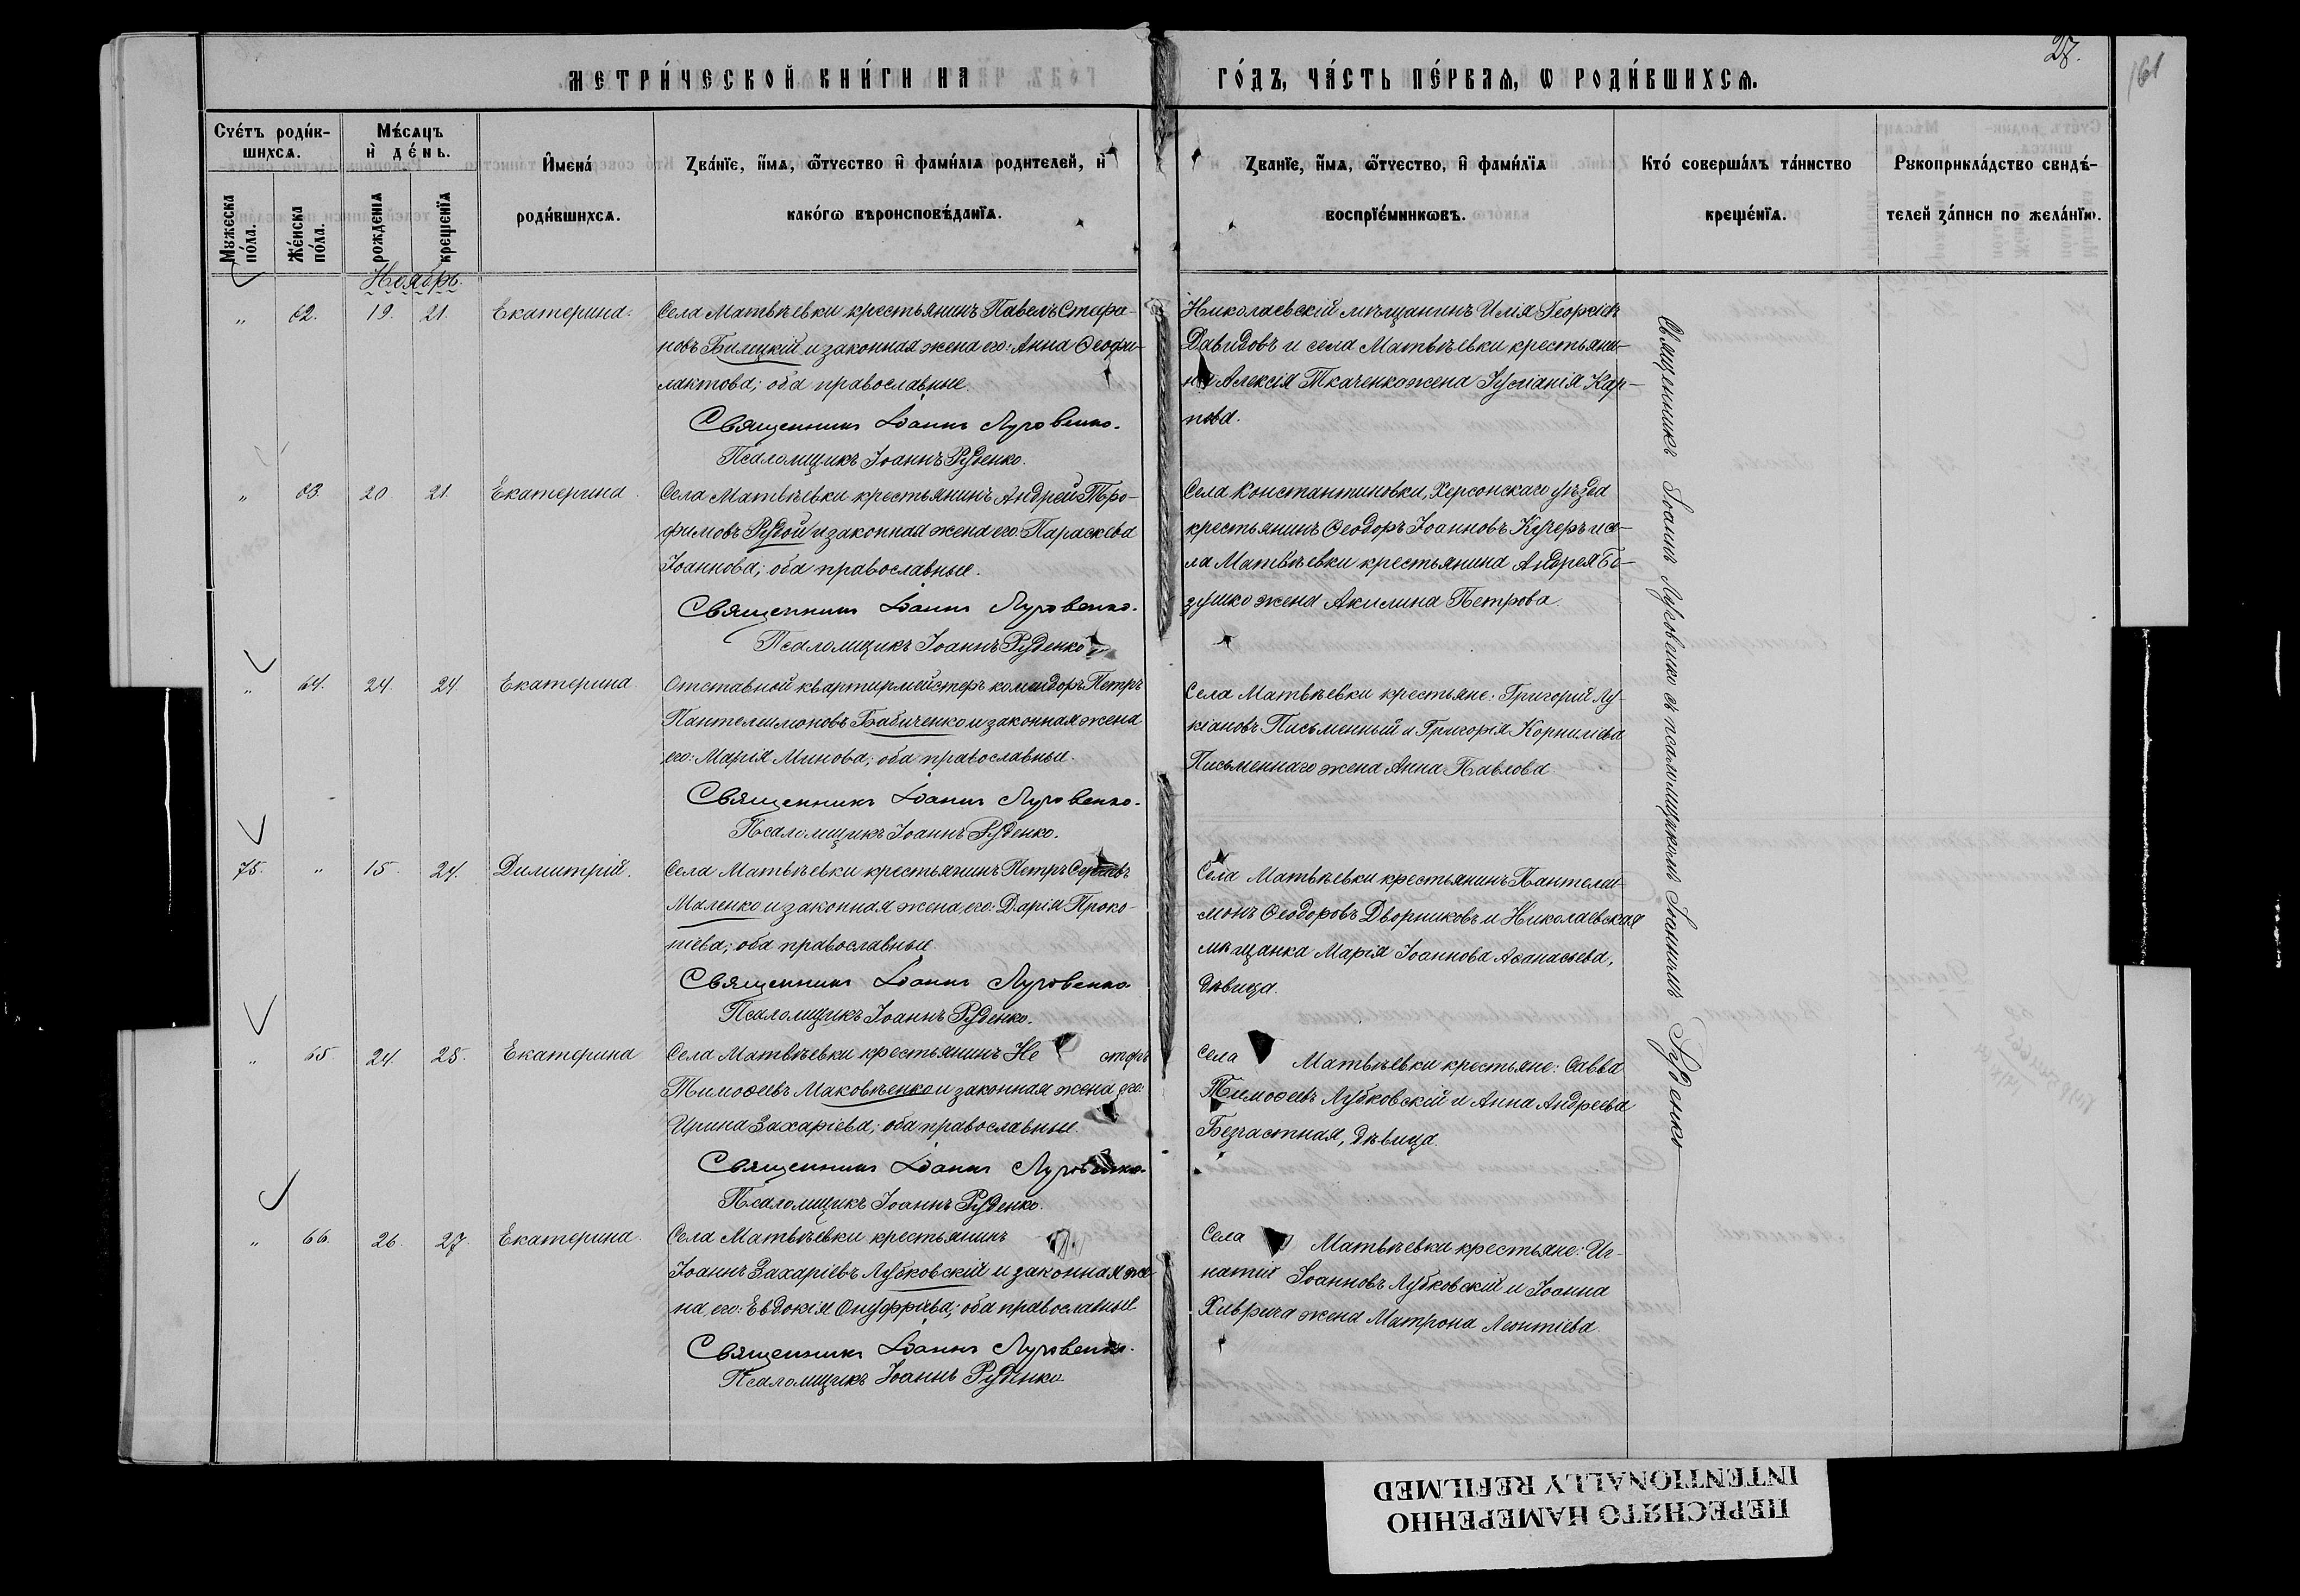 МЕТРИ́ЧЕСКОЙ КНИ́ГИ НА ГО́ДЪ, ЧА́СТЬ ПЕ́РВАѦ, Ѡ РОДИ́ВШИХСѦ.
28.
161
Счéтъ роди́в-
шихсѧ.
Мꙋжеска
по́ла.
Же́нска
по́ла.
Мѣ́сѧцъ
и҆ де́нь.
рожденїѧ
крещенїѧ
И҆мена́
роди́вшихсѧ.
Зва́нїе, и҆́мѧ, ѻ҆́тчество и҆ фами́лїѧ родителей, и҆
како́гѡ вѣроисповѣ́данїѧ.
Зва́нїе, и҆́мѧ, ѻ҆́тчество, и҆ фами́лїѧ
воспрїе́мникѡвъ.
Кто́ соверша́лъ та́инство
креще́нїѧ.
Рꙋкоприкла́дство свидѣ́-
телей за́писи по жела́нїю.
Ноябрь.
„ 62. 19. 21. Екатерина.
Села Матвѣевки крестьянинъ Павелъ Стефа-
новъ Билецкій и законная жена его: Анна Ѳеофи-
лактова; оба православные.
Священникъ Іоаннъ Луговенко.
Псаломщикъ Іоаннъ Руденко.
Николаевскій мѣщанинъ Илія Георгіевъ
Давидовъ и села Матвѣевки крестьяни-
на Алексія Ткаченко жена Іуліанія Кар-
пова.
Священникъ Іоаннъ Луговенко съ псаломщикомъ Іоанномъ Руденко
„ 63. 20 21. Екатерина.
Села Матвѣевки крестьянинъ Андрей Тро-
фимовъ Рудой и законная жена его: Параскева
Іоаннова; оба православные.
Священникъ Іоаннъ Луговенко.
Псаломщикъ Іоаннъ Руденко
Села Константиновки, Херсонскаго уѣзда
крестьянинъ Ѳеодоръ Іоанновъ Кучеръ и се-
ла Матвѣевки крестьянина Андрея Бо-
зушко жена Акилина Петрова.
„ 64. 24. 24 Екатерина.
Отставной квартирмейстеръ комендоръ Петръ
Пантелимоновъ Бабиченко и законная жена
его: Марія Минова; оба православные.
Священникъ Іоаннъ Луговенко.
Псаломщикъ Іоаннъ Руденко.
Села Матвѣевки крестьяне: Григорій Лу-
кіановъ Письменный и Григорія Корнилиева
Письменнаго жена Анна Павлова.
75. „ 15. 24. Димитрій.
Села Матвѣевки крестьянинъ Петръ
Маленко и законная жена его: Дарія Проко-
піева; оба православные.
Священникъ Іоаннъ Луговенко.
Псаломщикъ Іоаннъ Руденко.
Села Матвѣевки крестьянинъ Пантелеи-
монъ Ѳеодоровъ Дворниковъ и Николаевская
мѣщанка Марія Іоаннова Аѳанасьева,
дѣвица.
„ 65 24 25. Екатерина
Села Матвѣевки крестьянинъ Не сторъ
Тимоѳеевъ Маковѣенко и законная жена его:
Ирина Захаріева; оба православные.
Священникъ Іоаннъ Луговенко.
Псаломщикъ Іоаннъ Руденко.
Села Матвѣевки крестьяне: Савва
Тимоѳеевъ Лубковскій и Анна Андреева
Безчастная, дѣвица.
„ 66. 26. 27. Екатерина.
Села Матвѣевки крестьянинъ
Іоаннъ Захаріевъ Лубковскій и законная же-
на его: Евдокія Онуфріева; оба православные
Священникъ Іоаннъ Луговенко.
Псаломщикъ Іоаннъ Руденко
Села Матвѣевки крестьяне: Иг-
натій Іоанновъ Лубковскій и Іоанна
Хиврича жена Матрона Леонтіева.
ПЕРЕСНЯТО НАМЕРЕННО
INTENTIONALLY REFILMED